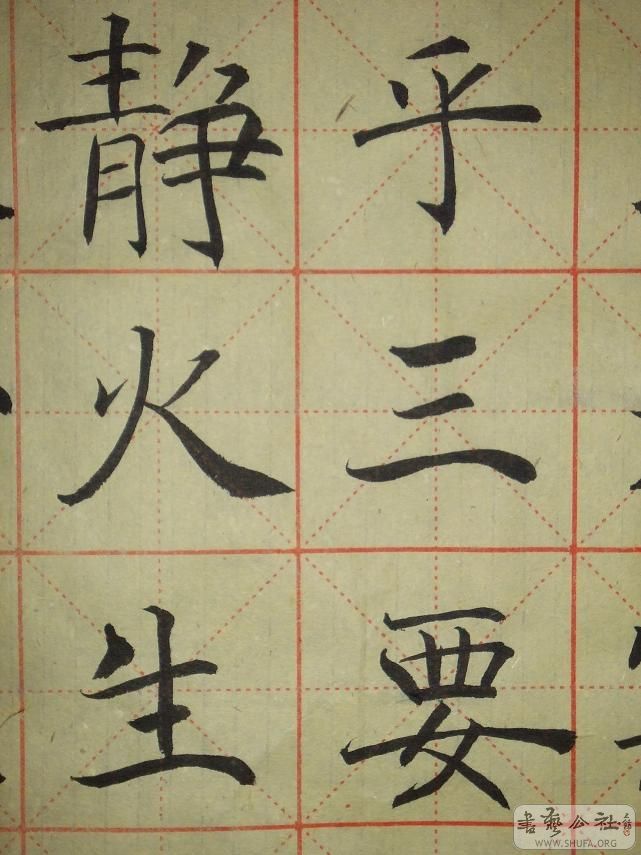 乎三要
静火生
書藝公社
WWW.SHUFA.ORG